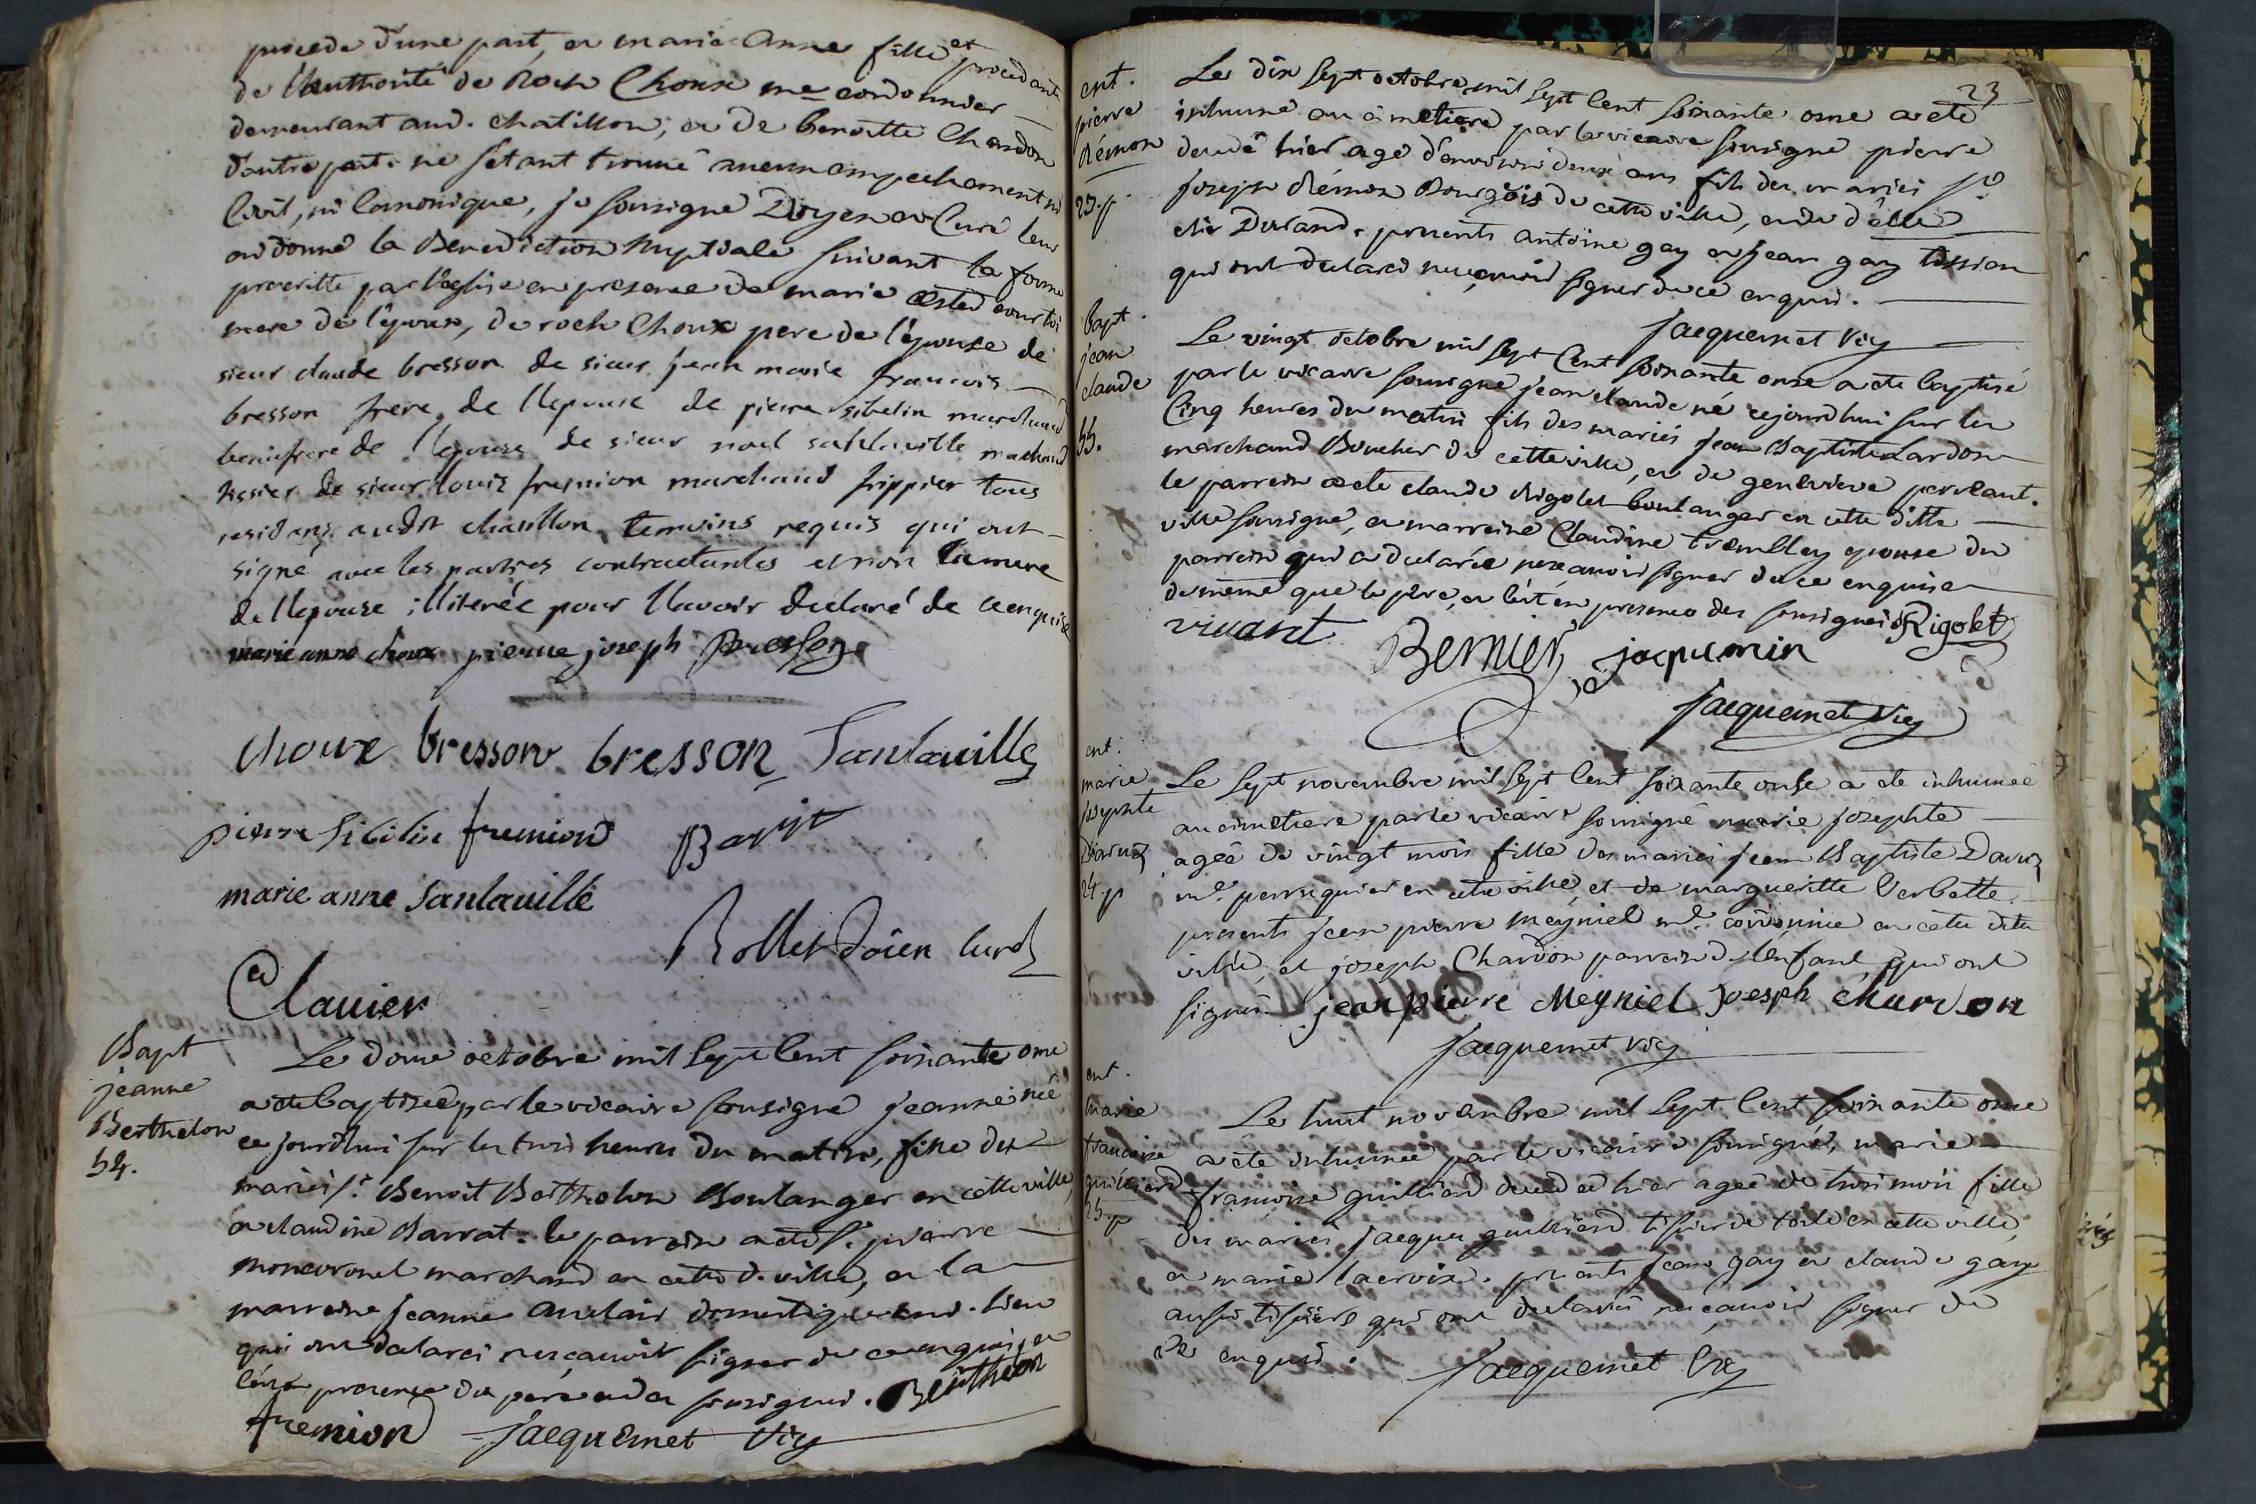 procede d'une part, et marie Anne fille et procedante
de l'Authorité de Roch Choux me cordonnier
demeurant aud. chatillon, et de benoitte Chardon
d'autre part. ne s'etant trouvé aucun ampechement ni
Civil, ni Canonique, je soussigné Doyen et Curé leur
ai donné la Benediction Nuptiale suivant la forme
prescritte par l'eglise en presence de marie
mere de l'epoux, de roch Choux pere de l'epouse de
sieur claude bresson de sieur jean marie francois
bresson frere de llepoux de pierre sibelin marchand
beaufrere de llepouse de sieur noel santaville marchand
de sieur louis fremion marchand frippier tous
residans audit chatillon temoins requis qui ont
signé avec les parties contractantes et non la mere
de llepouse illiterée pour llavoir declaré de ce enquise
marie anne choux pierre joseph Bresson
choux bresson bresson Santaville
pierre Sibelin fremion
marie anne Santaville
Rollet Doien Curé
Clavier
Bapt
jeanne
Berthelon
54.
Le douze octobre mil sept Cent soixante onze
a ete baptisée par le vicaire sousigné jeanne née
ce jourdhui sur les trois heures du matin, fille des
mariés Sr. Benoit Berthelon Boulanger en cette ville,
et claudine Barrat. le parrein a eté Sr. pierre
marchand en cette d. ville, et la
marreine jeanne domestique aud. lieu
qui ont declaré ne sçavoir signer de ce enquis, et
presence du pere et des sousignés. Berthelon
fremion Jacquemet Vic
23
ent.
pierre
Rémon
23. p.
Le dix sept octobre mil sept Cent soixante onze a eté
inhumé au cimetiere par le vicaire sousigné pierre
decedé hier agé d'environ deux ans fils des mariés Sr.
joseph Rémon Bourgeois de cette ville, et de delle
Durand. presents antoine gay et jean gay
qui ont declaré ne sçavoir signer de ce enquis.
Jacquemet Vic
bapt.
jean
claude
55.
Le vingt octobre mil sept Cent soixante onze a ete baptisé
par le vicaire sousigné jean claude né cejourdhui sur les
Cinq heures du matin fils des mariés jean Baptiste Lardon
marchand Boucher de cette ville, et de genevieve
le parrein a ete claude Rigolet boulanger en cette ditte
ville sousigné, et marreine Claudine Trembley epouse du
parrein qui a declarée ne sçavoir signer de ce enquise
de même que le pere, et en presence des sousignés Rigolet
vivant Bernier jaquemin
Jacquemet Vic
ent.
marie
josephte
24. p
Le sept novembre mil sept Cent soixante onse a ete inhumée
au cimetiere par le vicaire sousigné marie josephte
agée de vingt mois fille des mariés jean Baptiste
me. perruquier en cette ville, et de margueritte Verbette.
presents jean pierre meyniel me. cordonnier en cette ditte
ville, et joseph Chardon parrein de l'enfant qui ont
signés jean pierre Meyniel joesph chardon
Jacquemet Vic
ent.
Marie
francoise
guilliard
25. p
Le huit novembre mil sept Cent soixante onse
a eté inhumée par le vicaire sousigné, marie
francoise guilliard decedée hier agée de trois mois fille
des mariés jacques guilliard tissier de toile en cette ville,
et marie lacroix. presents jean gay et claude gay
aussi tissiers qui ont declarés ne sçavoir signer de
ce enquis.
Jacquemet Vic